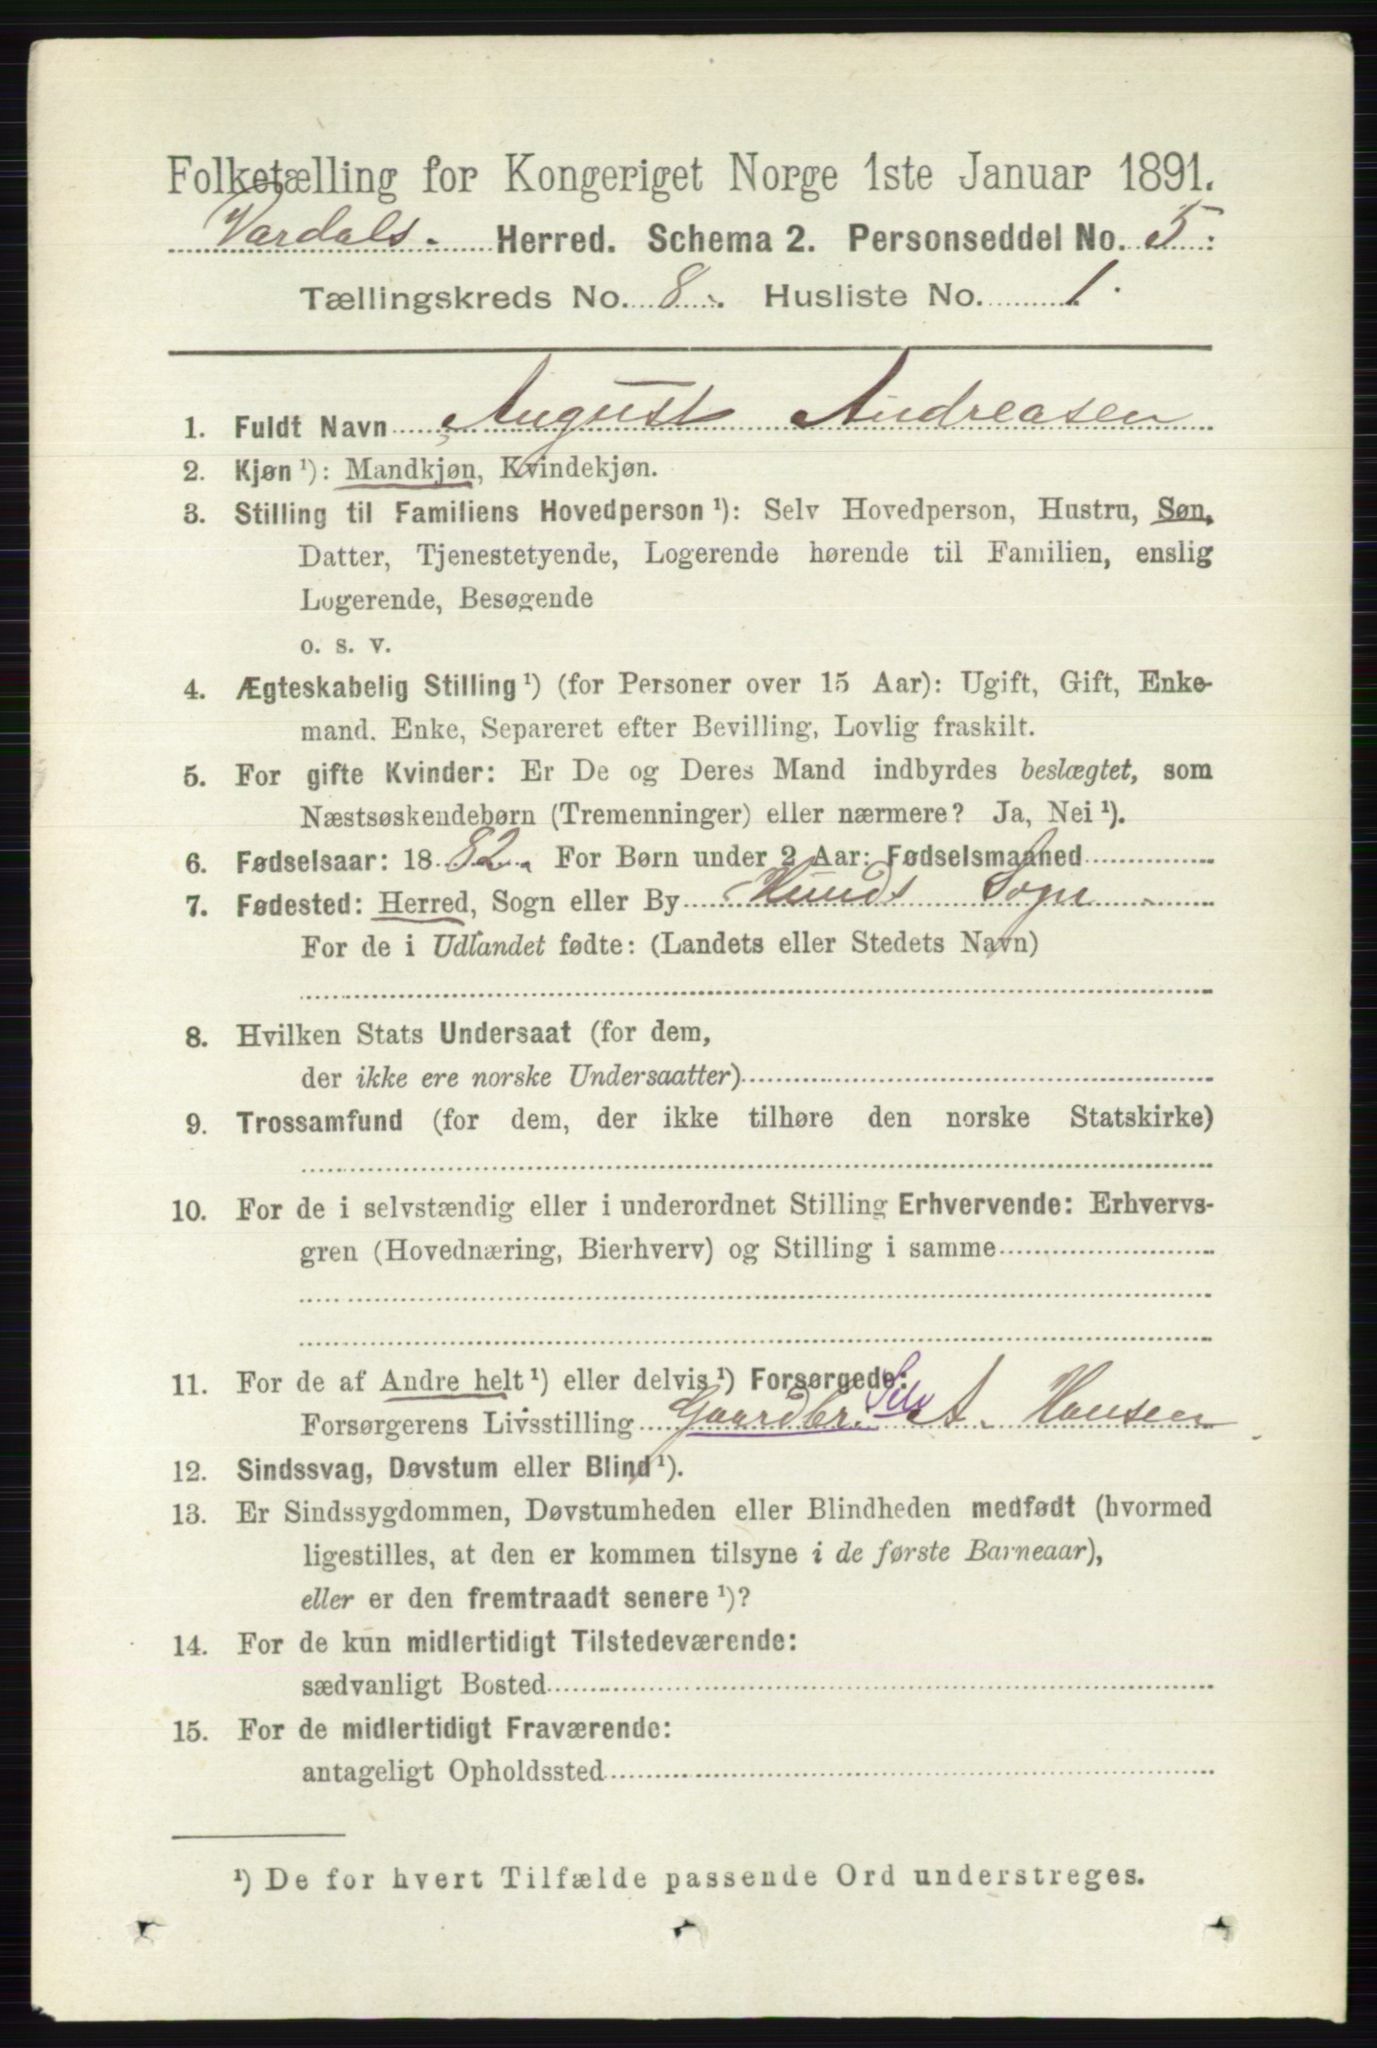 Folketælling for Kongeriget Norge 1ste Januar 1891.
Vardals. Herred. Schema 2. Personseddel No. 5.
Tællingskreds No. 8. Husliste No. 1.
1. Fuldt Navn August Andreasen
2. Kjøn ¹): Mandkjøn, Kvindekjøn.
3. Stilling til Familiens Hovedperson ¹): Selv Hovedperson, Hustru, Søn,
Datter, Tjenestetyende, Logerende hørende til Familien, enslig
Logerende, Besøgende
o. s. v.
4. Ægteskabelig Stilling ¹) (for Personer over 15 Aar): Ugift, Gift, Enke-
mand. Enke, Separeret efter Bevilling, Lovlig fraskilt.
5. For gifte Kvinder: Er De og Deres Mand indbyrdes beslægtet, som
Næstsøskendebørn (Tremenninger) eller nærmere? Ja, Nei ¹).
6. Fødselsaar: 1882. For Børn under 2 Aar: Fødselsmaaned
7. Fødested: Herred, Sogn eller By Hunds Sogn
For de i Udlandet fødte: (Landets eller Stedets Navn)
8. Hvilken Stats Undersaat (for dem,
der ikke ere norske Undersaatter)
9. Trossamfund (for dem, der ikke tilhøre den norske Statskirke)
10. For de i selvstændig eller i underordnet Stilling Erhvervende: Erhvervs-
gren (Hovednæring, Bierhverv) og Stilling i samme
11. For de af Andre helt ¹) eller delvis ¹) Forsørgede:
Forsørgerens Livsstilling Gaardbr. Selv A. Hansen
12. Sindssvag, Døvstum eller Blind ¹).
13. Er Sindssygdommen, Døvstumheden eller Blindheden medfødt (hvormed
ligestilles, at den er kommen tilsyne i de første Barneaar),
eller er den fremtraadt senere ¹)?
14. For de kun midlertidigt Tilstedeværende:
sædvanligt Bosted
15. For de midlertidigt Fraværende:
antageligt Opholdssted
¹) De for hvert Tilfælde passende Ord understreges.